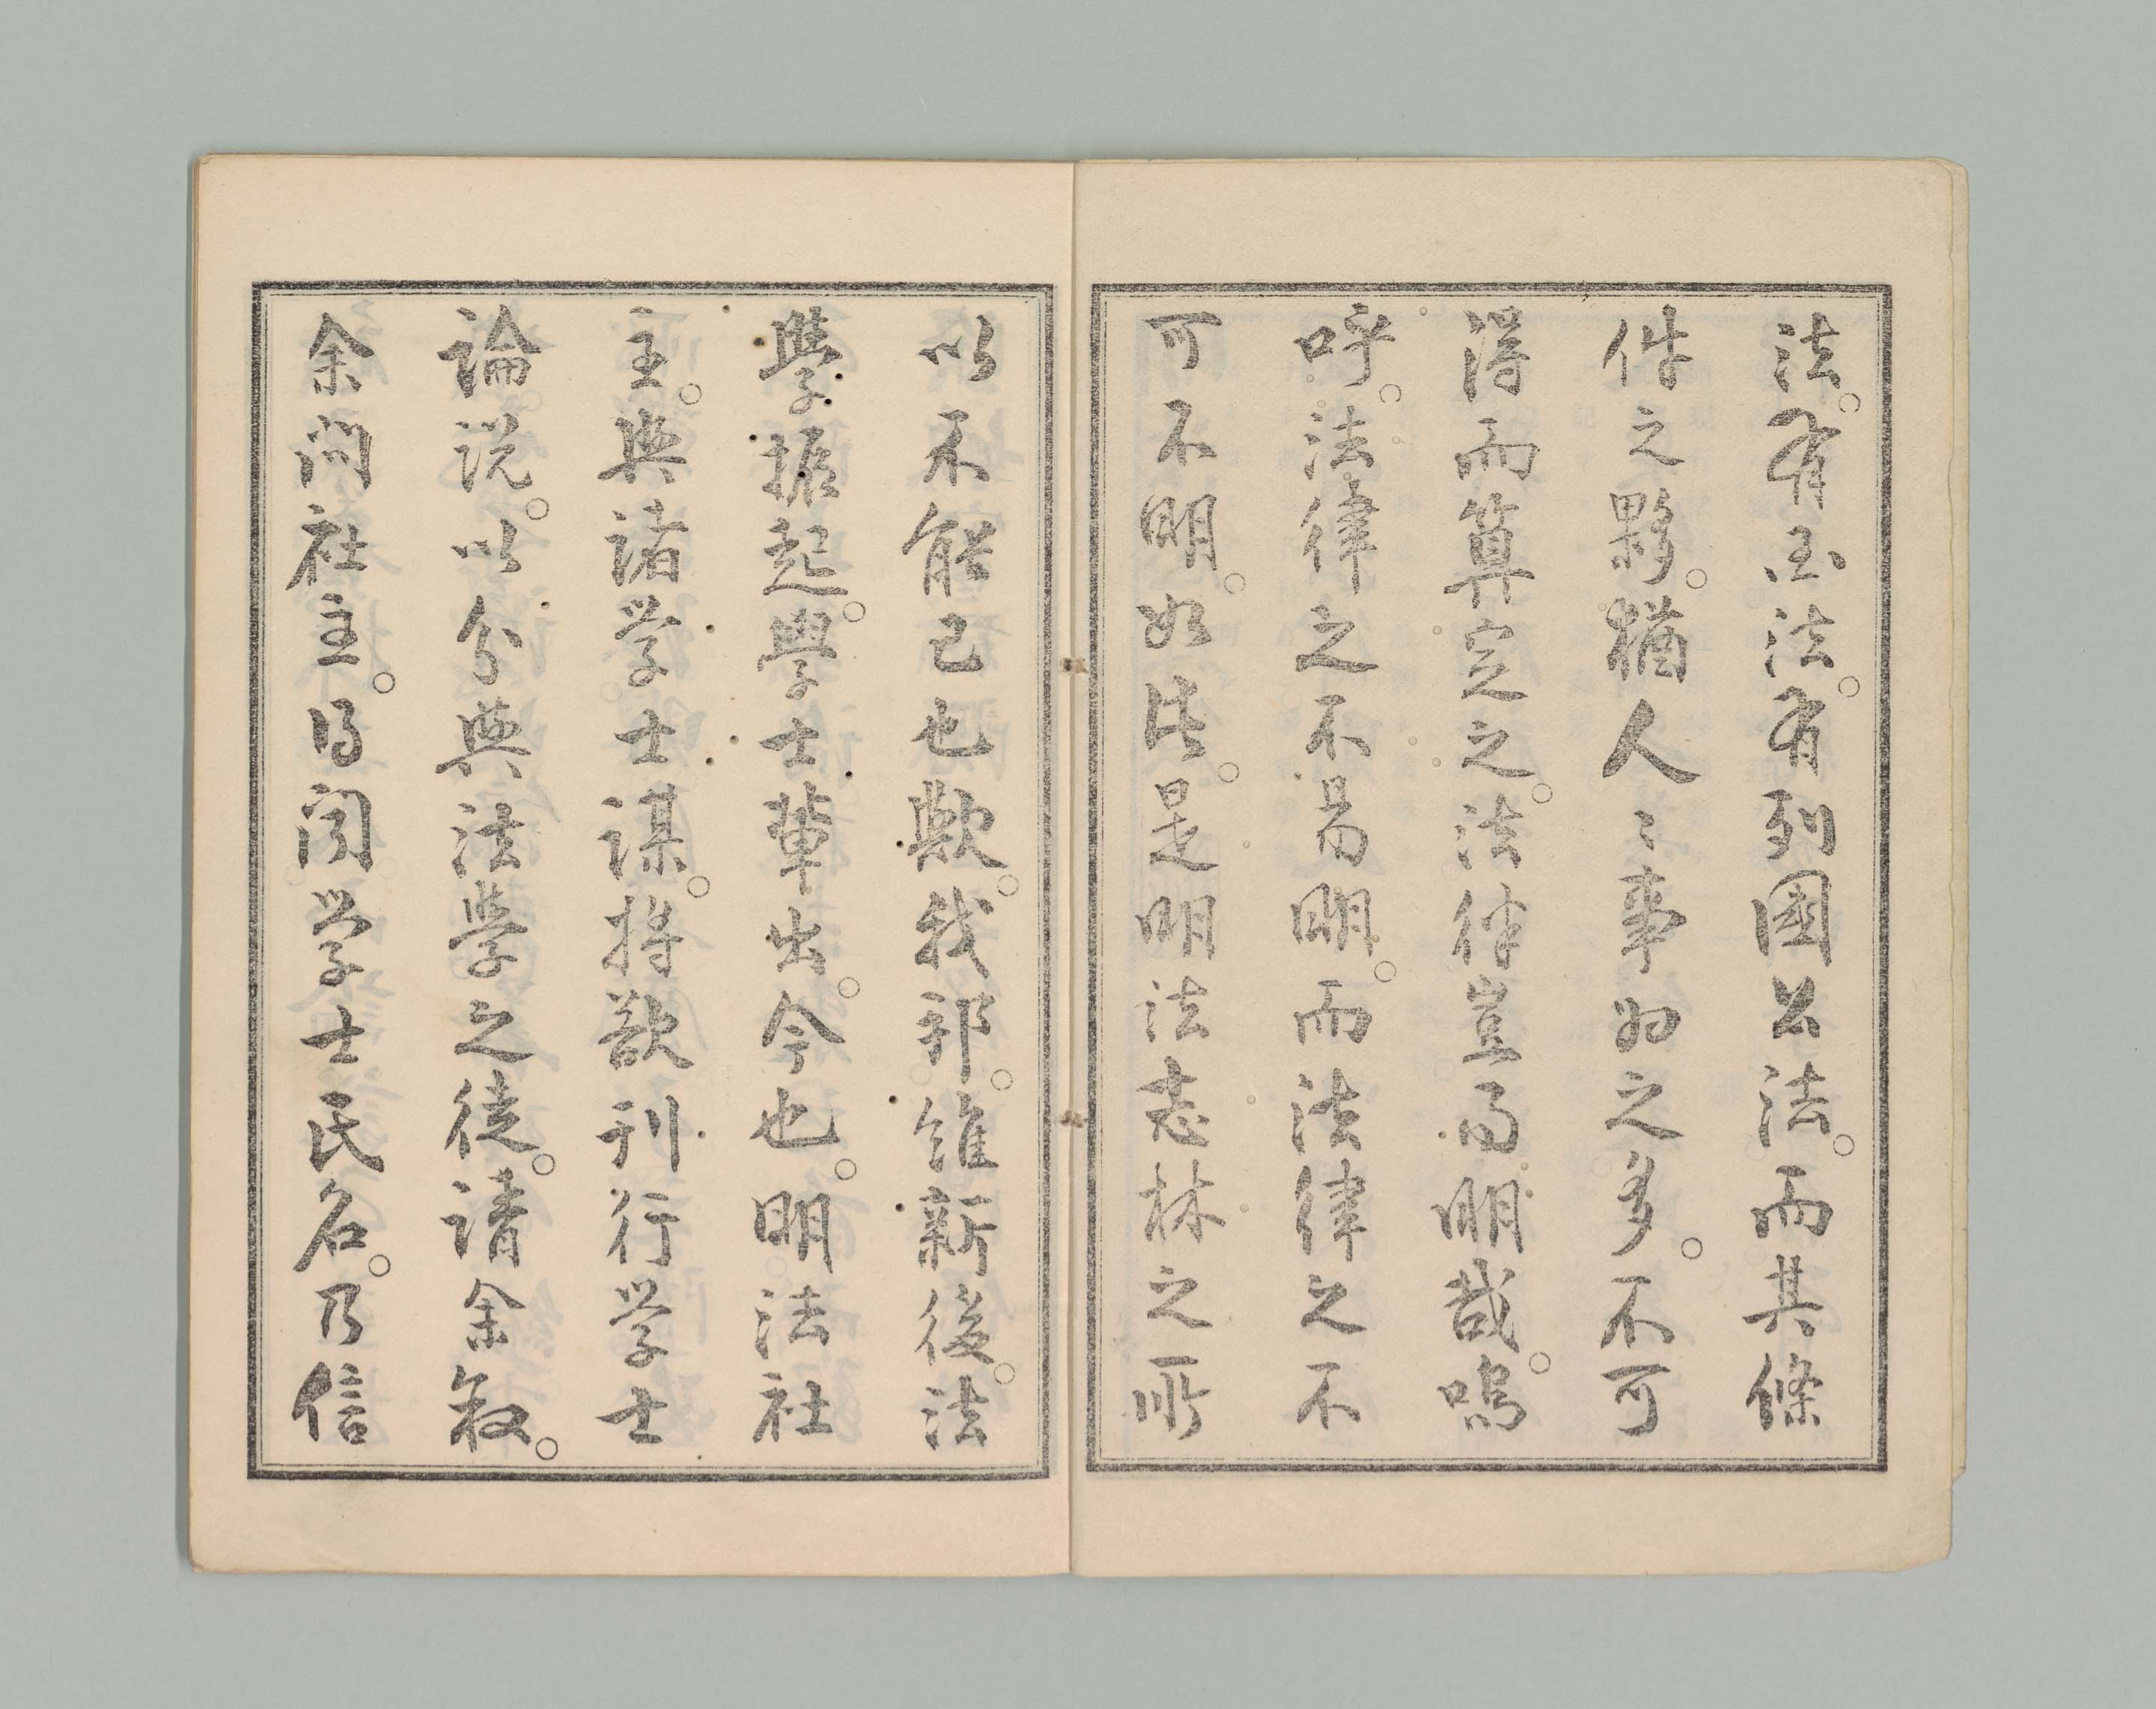 法。有玉法。有列國公法。而其條
件之夥。猶人〻事為之多。不可
得而算定之。法律豈得明哉。嗚
呼。法律之不易明。而法律之不
可不明。如此。是明法志林之所
以不能已也歟。我邦。維新後。法
學振起。學士輩出。今也。明法社
主。與諸学士謀。將欲刊行学士
論説。以分與法學之徒。請余敘。
余問社主。得聞学士氏名。乃信